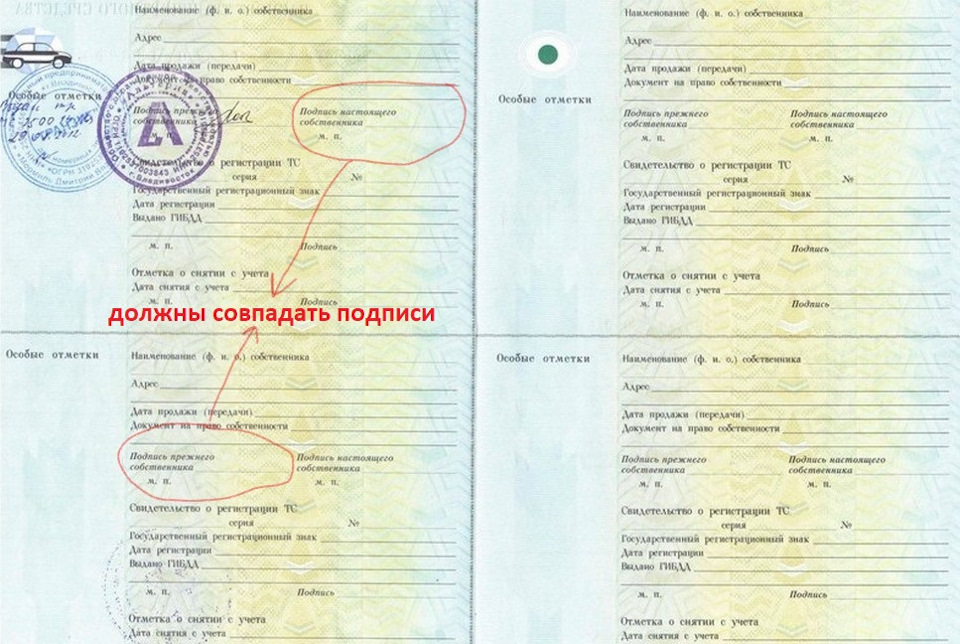 Наименование (ф. и. о.) собственника
Адрес
Дата продажи (передачи)
Документ на право собственности
Особые отметки
Подпись прежнего собственника
м. п.
Подпись настоящего
собственника
м. п.
Свидетельство о регистрации ТС
серия №
Государственный регистрационный знак
Дата регистрации
Выдано ГИБДД
м. п. Подпись
Отметка о снятии с учета
Дата снятия с учета
м. п. Подпись
должны совпадать подписи
Наименование (ф. и. о.) собственника
Адрес
Дата продажи (передачи)
Документ на право собственности
Особые отметки
Подпись прежнего
собственника
м. п.
Подпись настоящего
собственника
м. п.
Свидетельство о регистрации ТС
серия №
Государственный регистрационный знак
Дата регистрации
Выдано ГИБДД
м. п. Подпись
Отметка о снятии с учета
Дата снятия с учета
м. п. Подпись
Особые отметки
Наименование (ф. и. о.) собственника
Адрес
Дата продажи (передачи)
Документ на право собственности
Подпись прежнего
собственника
м. п.
Подпись настоящего
собственника
м. п.
Свидетельство о регистрации ТС
серия №
Государственный регистрационный знак
Дата регистрации
Выдано ГИБДД
м. п. Подпись
Отметка о снятии с учета
Дата снятия с учета
Особые отметки
Наименование (ф. и. о.) собственника
Адрес
Дата продажи (передачи)
Документ на право собственности
Подпись прежнего
собственника
м. п.
Подпись настоящего
собственника
м. п.
Свидетельство о регистрации ТС
серия №
Государственный регистрационный знак
Дата регистрации
Выдано ГИБДД
м. п. Подпись
Отметка о снятии с учета
Дата снятия с учета